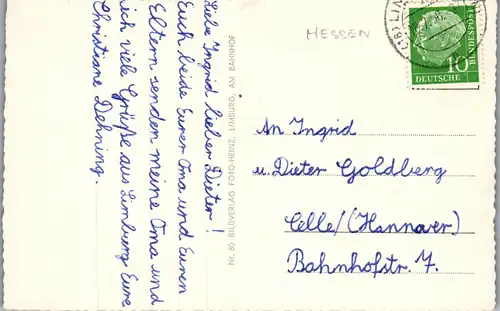 Liebe Ingrid lieber Dieter!
Euch beide Eurer Oma und Euren
Eltern senden meine Oma und
ich viele Grüße aus Limburg Eure
Christiane Dehning.
Nr. 80 BILDVERLAG FOTO-HEINZ, LIMBURG, AM BAHNHOF
HESSEN
(16) LIM
10
DEUTSCHE
BUNDESPOST
An Ingrid
u. Dieter Goldberg
Celle/(Hannover)
Bahnhofstr. 7.